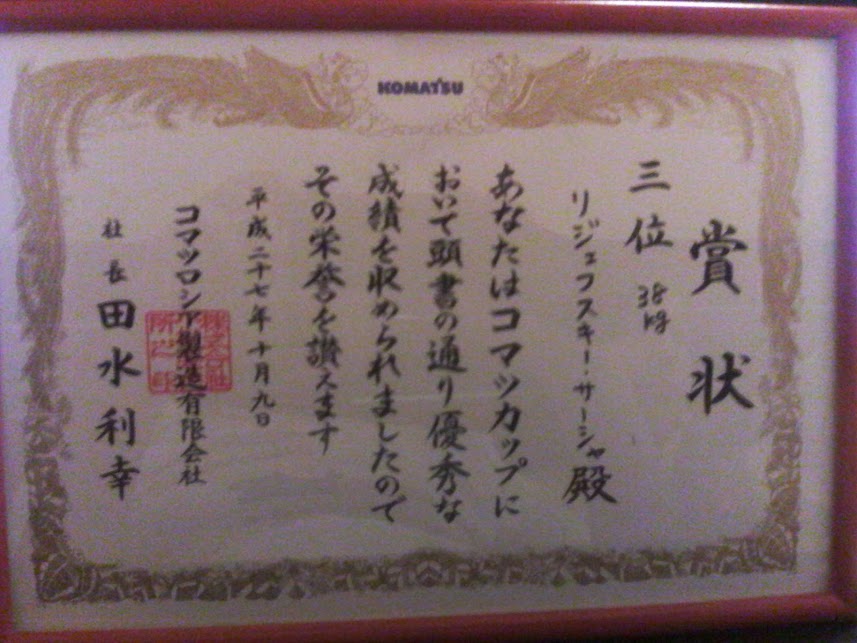 KOMATSU
賞状
三位 38kg
リジェフスキー・サーシャ殿
あなたはコマツカップに
おいて頭書の通り優秀な
成績を収められましたので
その栄誉を讃えます
平成二十七年十月九日
コマツロシア製造有限会社
社長 田水利幸